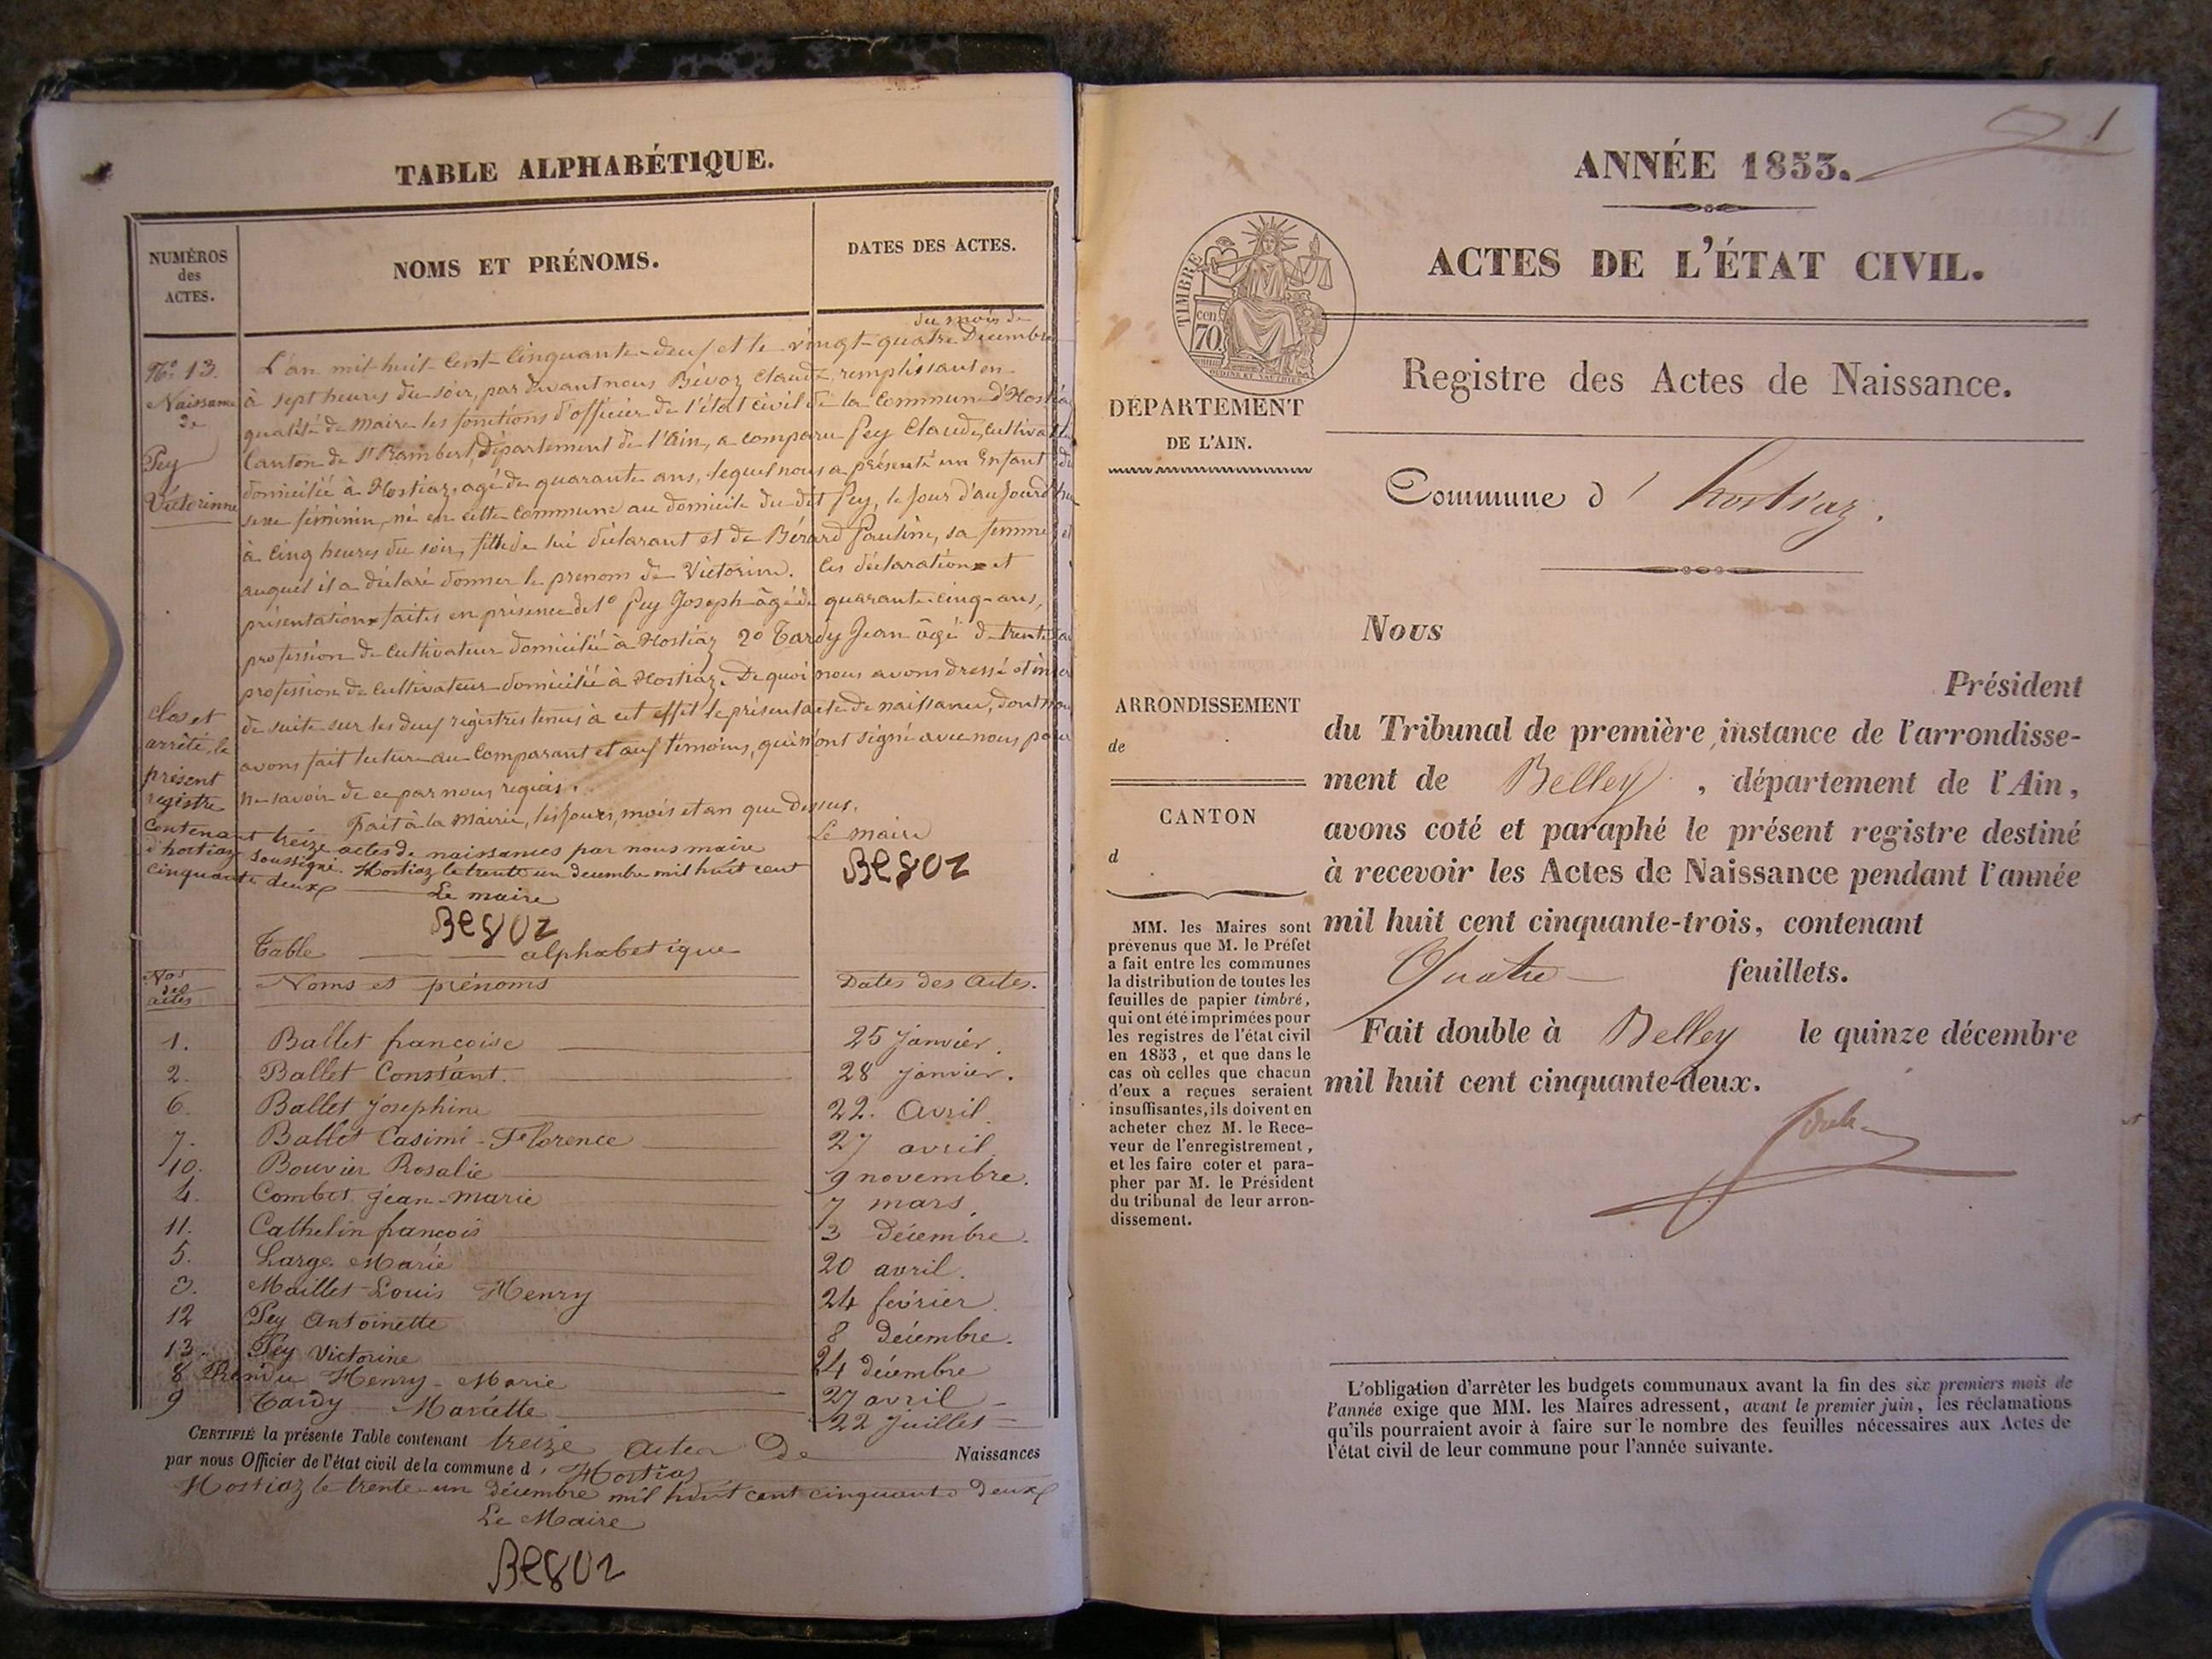 TABLE ALPHABÉTIQUE.
NUMÉROS
des
ACTES.
NOMS ET PRÉNOMS.
DATES DES ACTES.
du mois de
N° 13.
Naissance
de
Pey
Victorinne
L'an mil huit cent cinquante-deux et le vingt-quatre Décembre
à sept heures du soir, par devant nous Bévoz Claude, remplissant en
qualité de Maire les fonctions d'officier de l'état civil de la Commune d'Hostiaz
Canton de St Rambert, Département de l'Ain, a comparu Pey Claude, cultivateur
domicilié à Hostiaz, agé de quarante ans, lequel nous a présenté un Enfant du
sexe féminin, né en cette Commune au domicile du dit Pey, le jour d'aujourd'hui
à cinq heures du soir, fille de lui déclarant et de Bérard Pauline, sa femme, et
auquel il a déclaré donner le prenom de Victorine. Les déclaration et
présentation faites en présence de 1° Pey Joseph âgé de quarante-cinq ans,
profession de cultivateur domicilié à Hostiaz 2° Tardy Jean âgé de trente
profession de cultivateur domicilié à Hostiaz. De quoi nous avons dressé et
de suite sur les deux registres tenus à cet effet le présent acte de naissance, dont nous
avons fait lecture au comparant et aux témoins, qui n'ont signé avec nous pour
ne savoir de ce par nous requis.
Fait à la Mairie, les jours, mois et an que dessus.
Le maire
Begoz
clos et
arrêté, le
présent
registre
contenant treize actes de naissances par nous maire
d'hostiaz soussigné. Hostiaz le trente un decembre mil huit cent
cinquante deux
Le maire
Begoz
Table alphabetique
Nos
des
actes
Noms et prénoms
Dates des Actes.
1. Ballet françoise 25 Janvier.
2. Ballet Constant. 28 janvier.
6. Ballet Josephine 22. Avril.
7. Ballet Casimi-Florence 27 avril.
10. Bouvier Rosalie 9 novembre.
4. Combet jean-marie 7 mars.
11. Cathelin françois 3 décembre.
5. Large Marie 20 avril.
3. Maillet Louis Henry 24 fevrier.
12 Pey Antoinette 8 décembre.
13. Pey Victorine 24 décembre
8 Rendu Henry-Marie 27 avril
9 Tardy Mariette 22 Juillet
CERTIFIÉ la présente Table contenant treize actes de Naissances
par nous Officier de l'état civil de la commune d' Hostiaz
Hostiaz le trente-un décembre mil huit cent cinquante deux
Le Maire
Begoz
1
ANNÉE 1853.
ACTES DE L'ÉTAT CIVIL.
TIMBRE
70 cen
Registre des Actes de Naissance.
DÉPARTEMENT
DE L'AIN.
Commune d' hostiaz.
ARRONDISSEMENT
de
CANTON
d
MM. les Maires sont
prévenus que M. le Préfet
a fait entre les communes
la distribution de toutes les
feuilles de papier timbré,
qui ont été imprimées pour
les registres de l'état civil
en 1853, et que dans le
cas où celles que chacun
d'eux a reçues seraient
insuffisantes, ils doivent en
acheter chez M. le Rece-
veur de l'enregistrement,
et les faire coter et para-
pher par M. le Président
du tribunal de leur arron-
dissement.
Nous
Président
du Tribunal de première instance de l'arrondisse-
ment de Belley, département de l'Ain,
avons coté et paraphé le présent registre destiné
à recevoir les Actes de Naissance pendant l'année
mil huit cent cinquante-trois, contenant
Quatre feuillets.
Fait double à Belley le quinze décembre
mil huit cent cinquante-deux.
L'obligation d'arrêter les budgets communaux avant la fin des six premiers mois de
l'année exige que MM. les Maires adressent, avant le premier juin, les réclamations
qu'ils pourraient avoir à faire sur le nombre des feuilles nécessaires aux Actes de
l'état civil de leur commune pour l'année suivante.